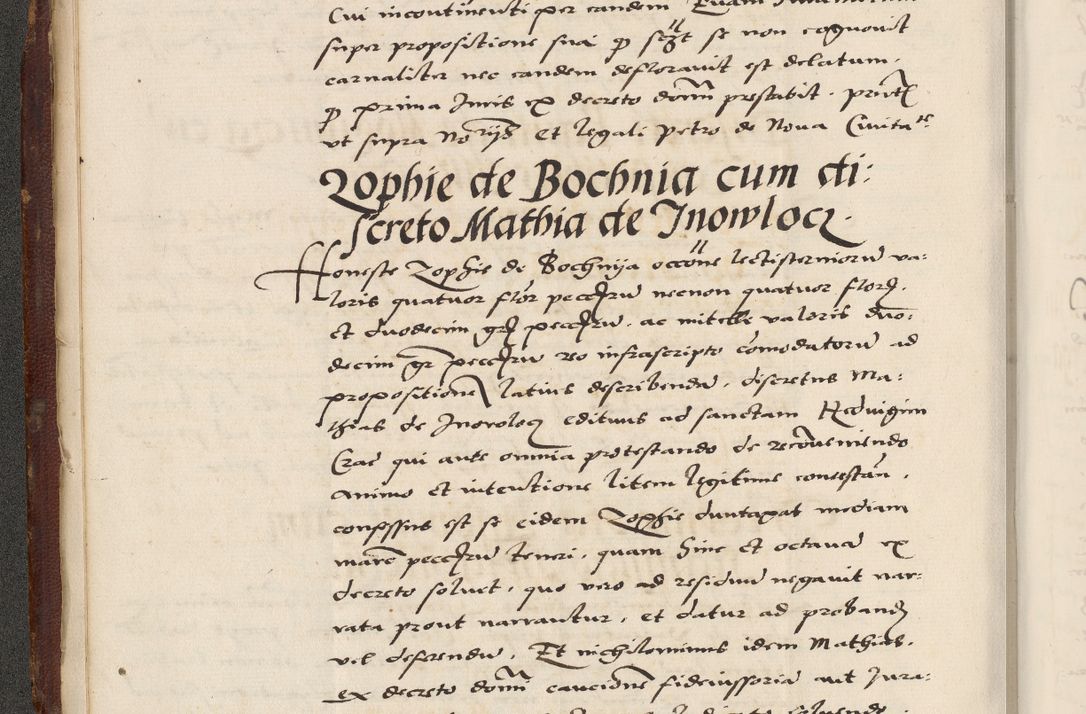 Cui incontinenti per eandem
super propositione sua se non cognovit
carnaliter nec eandem defloravit est delatum.
prima Juris ex decreto domini prestabit. 
ut supra Et legali Petro de Nova Civita
Zophie de Bochnia cum di:
screto Mathia de Inowlocz.
Honeste Zophie de Bochnija occone lectisterniorum va:
loris quatuor flor peccarum necnon quatuor flor.
et duodecim gr peccarum. ac mitelle valoris duo:
decim gr peccarum infrascripto comodatorum ad
propositionem latius describendum. discretus Ma:
thias de Inowlocz edituus ad sanctam Hedvigim
Crac qui ante omnia protestando de reconveniendo
animo et intentione litem legitime contestan.
confessus est se eidem Zophie duntaxat mediam
marc peccarum teneri. quam hinc et octavam ex
decreto solvet. quo vero ad residuum negavit nar:
rata prout narrantur. et datur ad proband
vel deferendum. Et nichilominus idem Mathias.
ex decreto domini caucionem fideiussoriam aut Jura: